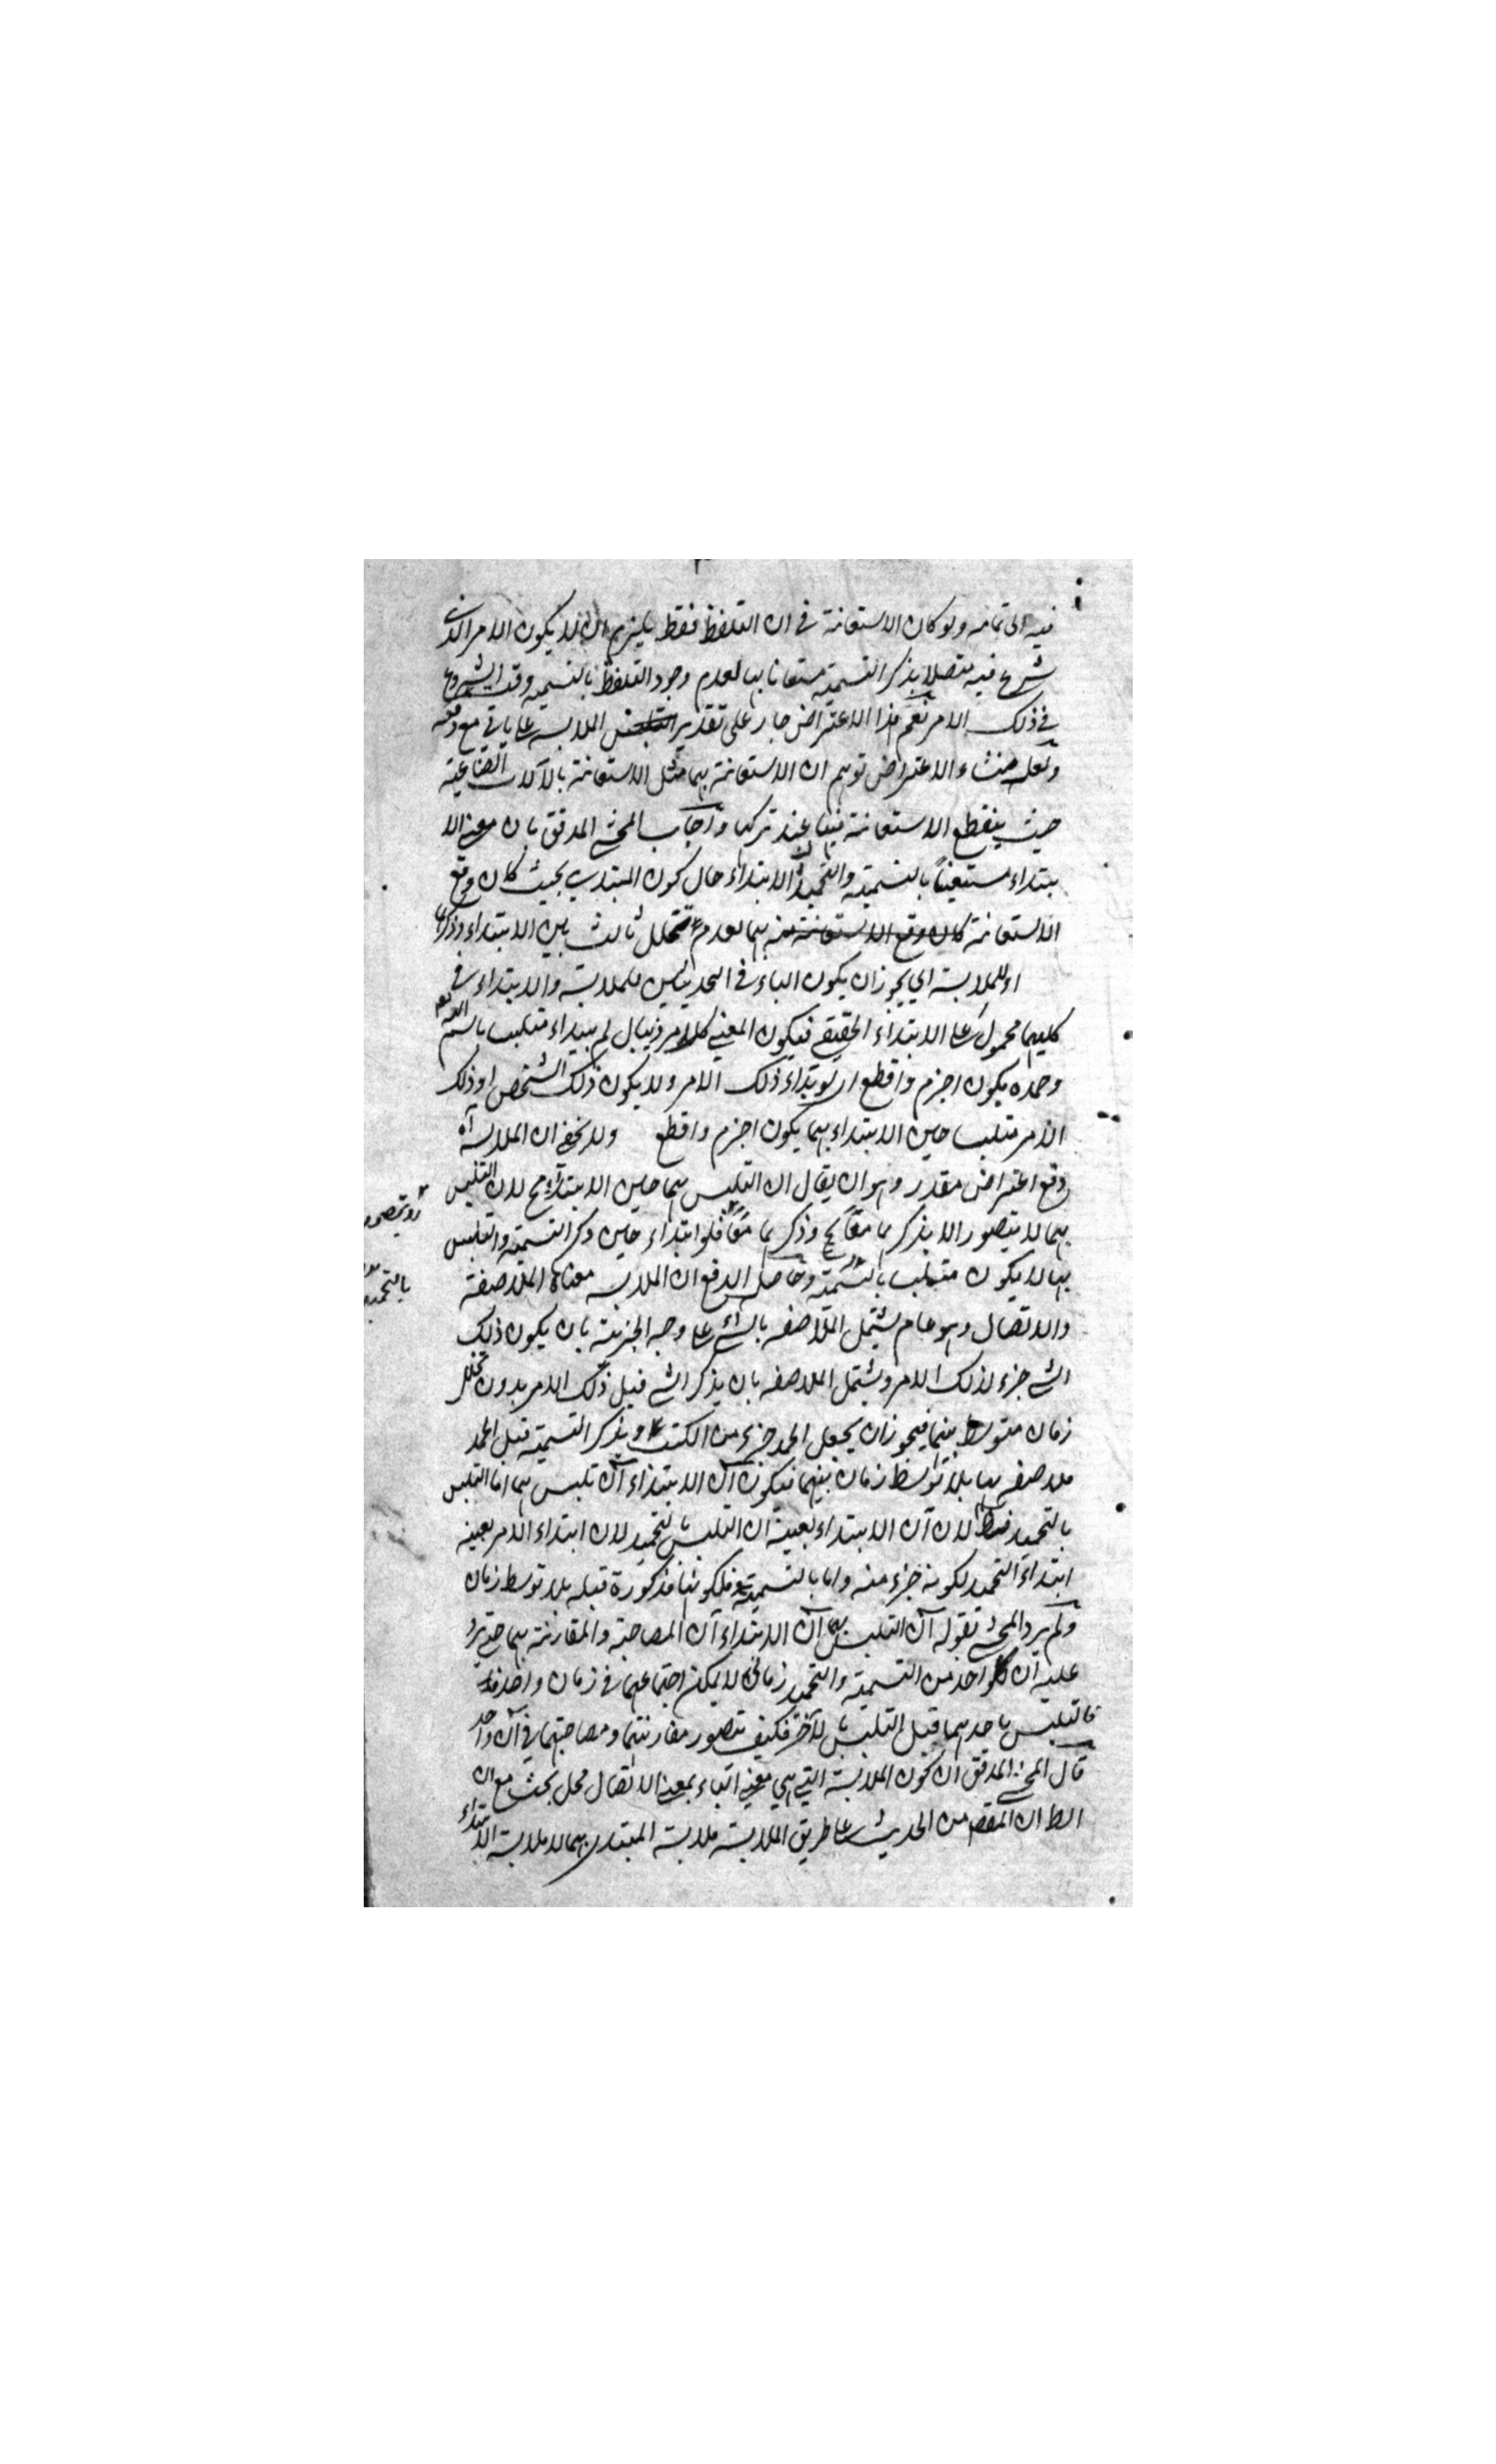 فيه الى تمامه ولو كان الاستعانة في ان التلفظ فقط يلزم ان لا يكون الامر الذي
شرع فيه متصلا بذكر التسمية مستعانا بها لعدم وجود التلفظ بالتسمية وقت الشروع
في ذلك الامر نعم هذا الاعتراض جار على تقدير الملابسة على ما ياتي مع دفعه
ولعل منشاء الاعتراض توهم ان الاستعانة بهما مثل الاستعانة بالآلات الصناعية
حيث ينقطع الاستعانة فيها عند تركها واجاب المحشي المدقق بان معنى الا
بتداء مستعينا بالتسمية والتحميد الابتداء حال كون المبتدي بحيث كان وقع
الاستعانة كان وقع الاستعانة منه بهما لعدم تخلل ثالث بين الابتداء وذكرهما
او للملابسة اي يجوز ان يكون الباء في الحديثين للملابسة والابتداء في
كليهما محمول على الابتداء الحقيقي فيكون المعنى كل امر ذي بال لم يبتداء متلبسا باسم الله
وحمده يكون اجزم واقطع اي لو بتداء ذلك الامر ولا يكون ذلك الشخص او ذلك
الامر متلبسا حين الابتداء بهما يكون اجزم واقطع ولا يخفى ان الملابسة آه
دفع اعتراض مقدر وهو ان يقال ان التلبس بهما حين الابتداء مح لان التلبس
بهما لا يتصور الا بذكرهما معا وذكرهما معا مح فلو ابتداء حين ذكر التسمية والتلبس
بها لا يكون متلبسا بالتسمية وحاصل الدفع ان الملابسة معناها الملاصقة
والاتصال وهو عام يشمل الملاصقة بالشئ على وجه الجزئية بان يكون ذلك
الشئ جزء لذلك الامر ويشتمل الملاصقة بان يذكر الشئ قبل ذلك الامر بدون تخلل
زمان متوسط بينهما فيجوز ان يجعل الحمد جزء من الكتب ويذكر التسمية قبل الحمد
ملاصقة بها بلا توسط زمان بينهما فيكون آن الابتداء آن تلبس بهما اما التلبس
بالتحميد فظ لان آن الابتداء بعينه آن التلبس بالتحميد لان ابتداء الامر بعينه
ابتداء التحميد لكونه جزء منه واما بالتسمية فلكونها مذكورة قبله بلا توسط زمان
ولم يرد المحشي بقوله آن التلبس بهما آن الابتداء آن المصاحبة والمقارنة بهما حتى يرد
عليه ان كل واحد من التسمية والتحميد زماني لا يمكن اجتماعهما في زمان واحد
فالتلبس باحدهما قبل التلبس بالآخر فكيف يتصور مقارنتهما ومصاحبتهما في آن واحد
قال المحشي المدقق ان كون الملابسة التي هي معنى الباء بمعنى الاتصال محل بحث مع ان
الظ ان المقصم من الحديث على طريق الملابسة ملابسة المبتدئ بهما لا ملابسة الابتداء
بالتحميد